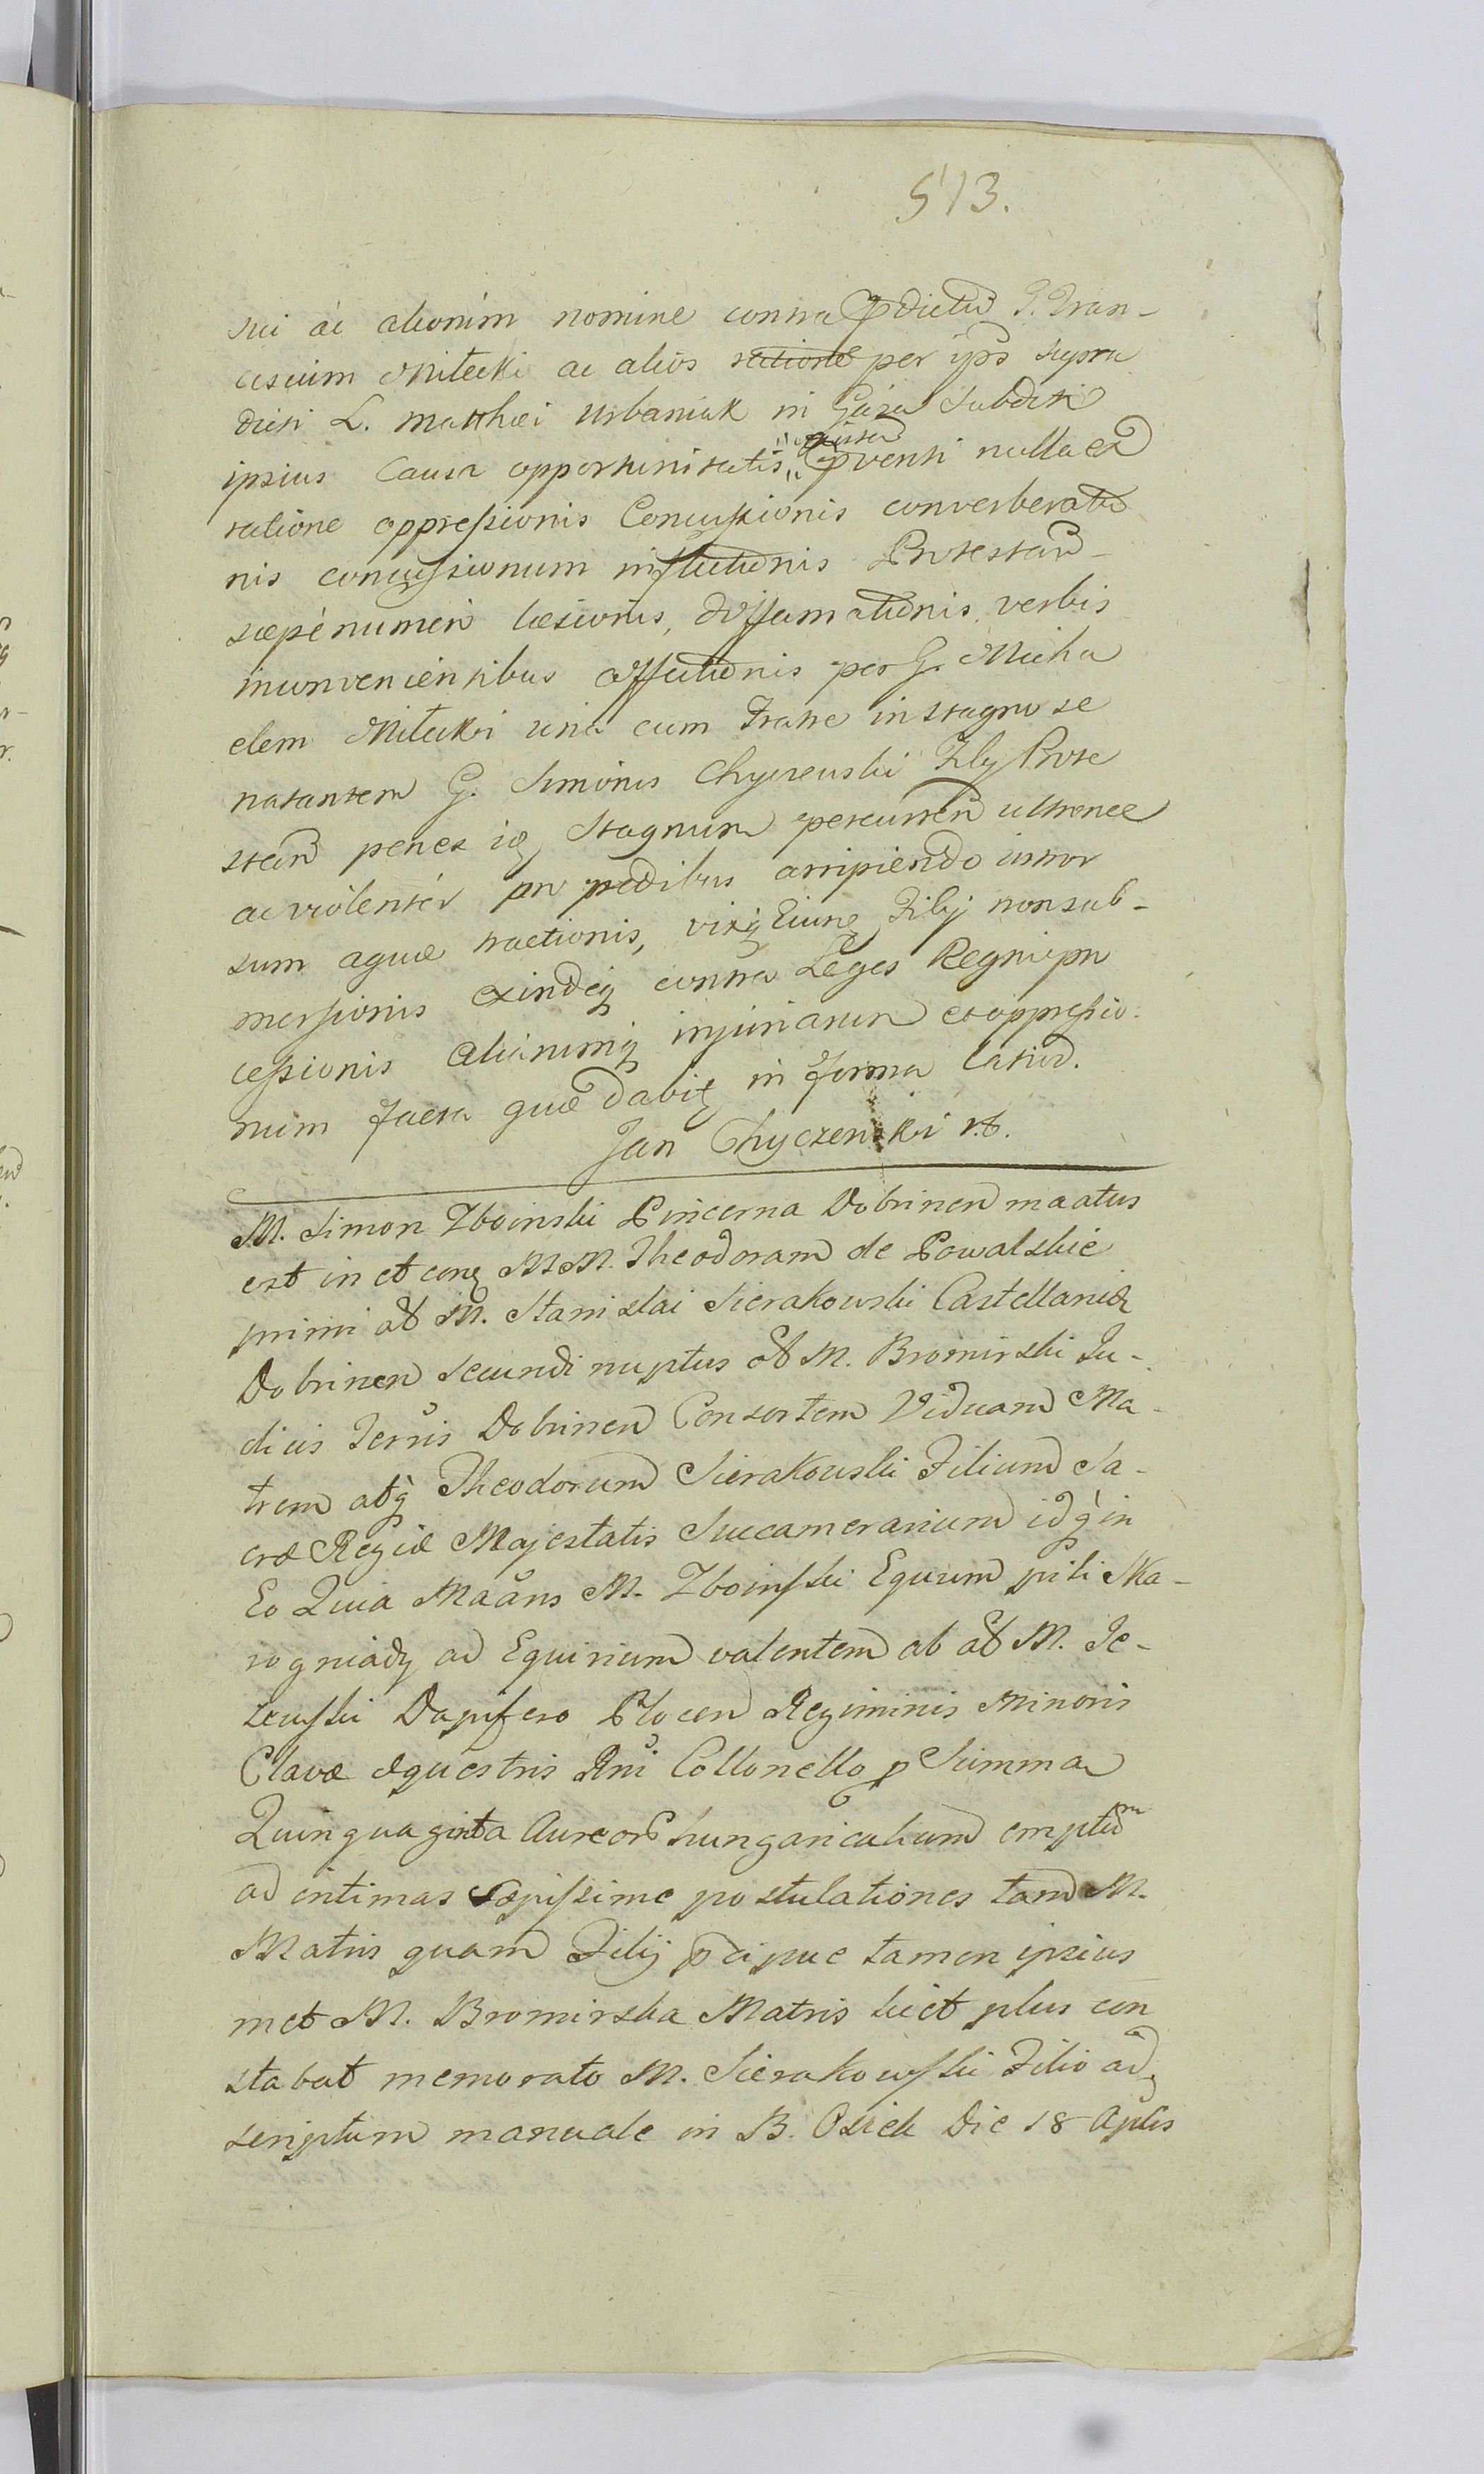 513.
sui ac aliorum nomine contra pdictū G. Fran-
ciscum Miłecki ac alios ratione per ips supra
dicti L. Matthæi Urbaniak in Gara Subditi
ipsius Causa opportunitatis pventi nulla ex
ratione oppressionis Concussionis converberatio
nis concussionum inflictionis Protestan-
sæpe numero læsionis, diffamationis verbis
inconvenientibus affectionis per G. Micha
elem Miłecki una cum Fratre in stagno se
natantem G. Simonis Chyczewski Filij Prote
stan penes idq Stagnum percurren ultronee
ac violenter pro pedibus arripiendo intror
sum aquæ tractionis, vixq Eiusq Filij non sub-
mersionis exindeq contra Leges Regni pro
cessionis aliarumq injuriarum et oppressio-
num facta quæ dabitq in forma latiori.
Jan Chyczewski
M. Simon Zboinski Pincerna Dobrinen maatus
est in et conq M.M. Theodoram de Powalskie
primi olt M. Stanislai Sierakowski Castellanidæ
Dobrinen secundi nuptus olt M. Bromirski Ju-
dicis Terris Dobrinen Consortem Viduam Ma-
trem atq Theodorum Sierakowski Filium Sa-
cræ Regiæ Majestatis Succamerarium idq in
Eo Quia Maans M. Zboinski Equum pili Ska-
rogniady ad Equirium valentem ab olt M. Je-
zewski Dapifero Plocen Regiminis Minoris
Clavæ equestris Rni Collonello p Summa
Quinquaginta Aureor hungaricalium emptum
ad intimas sæpissime postulationes tam M.
Matris quam Filij pcipue tamen ipsius
met M. Bromirska Matris licet plus con
stabat memorato M. Sierakowski Filio ad
scriptum manuale in B. Osiek Die 18 Aplis